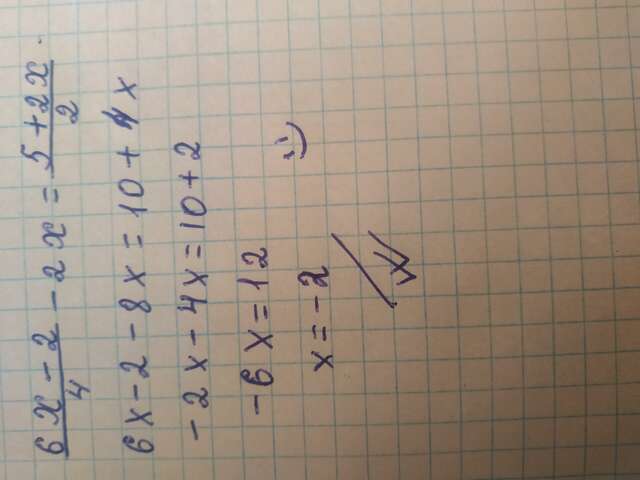 (6x-2)/4 - 2x = (5+2x)/2.
6x-2-8x=10+4x
-2x-4x=10+2
-6x=12
x=-2
:)